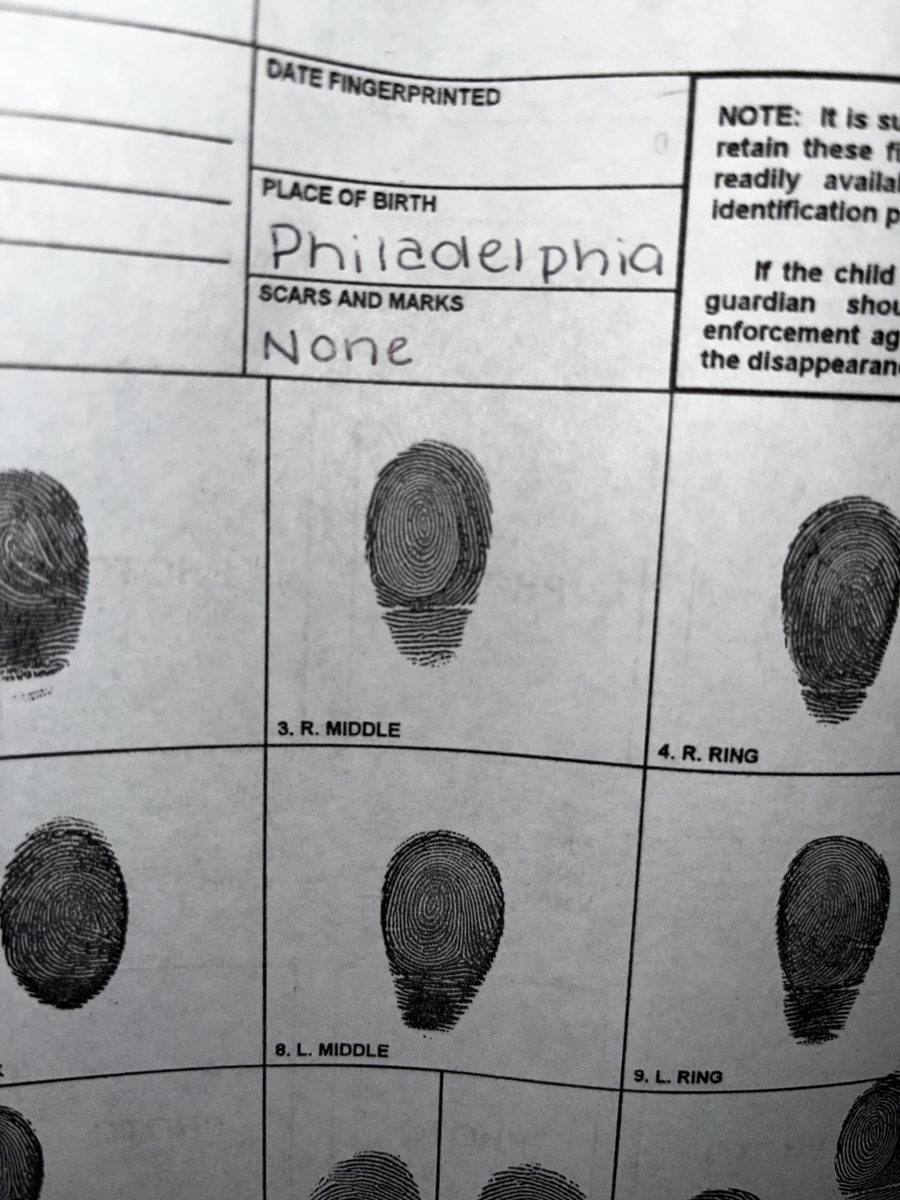 DATE FINGERPRINTED
PLACE OF BIRTH
Philadelphia
SCARS AND MARKS
None
NOTE: It is
retain these
readily
identification
If the child
guardian
enforcement
the
3. R. MIDDLE
4. R. RING
8. L. MIDDLE
9. L. RING